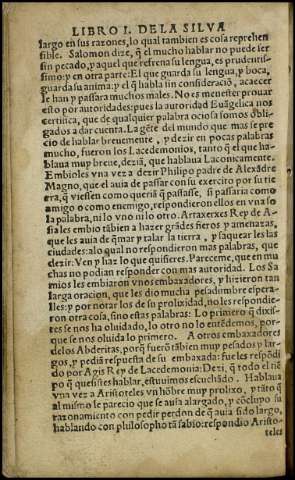 LIBRO I. DE LA SILVA
largo en sus razones, lo qual tambien es cosa reprehen
sible. Salomon dize, q̃ el mucho hablar no puede ser
sin pecado, y aquel que refrena su lengua, es prudentis-
simo: y en otra parte: El que guarda su lengua, y boca,
guarda su anima: y el q̃ habla sin consideraciõ, acaecer
le han y passara muchos males. No es menester prouar
esto por autoridades: pues la autoridad Euãgelica nos
certifica, que de qualquier palabra ociosa somos obli-
gados a dar cuenta. La gẽte del mundo que mas se pre
cio de hablar breuemente, y dezir en pocas palabras
mucho, fueron los Lacedemonios, tanto q̃ el que ha-
blaua muy breue, deziã, que hablaua Laconicamente.
Embioles vna vez a dezir Philipo padre de Alexãdre
Magno, que el auia de passar con su exercito por su tie
rra, q̃ viessen como queriã q̃ passasse, si passaria como
amigo o como enemigo, respondieron ellos en vna so
la palabra, ni lo vno ni lo otro. Artaxerxes Rey de A-
sia les embio tãbien a hazer grãdes fieros y amenazas,
que les auia de q̃mar y talar la tierra, y saquear les las
ciudades: alo qual no respondieron mas palabras, que
dezir: Ven y haz lo que quisieres. Pareceme, que en mu
chas no podian responder con mas autoridad. Los Sa
mios les embiaron vnos embaxadores, y hizieron tan
larga oracion, que les dio mucha pesadumbre espera-
lles: y por notar los de su prolixidad, no les respondie-
ron otra cosa, sino estas palabras: Lo primero q̃ dixis-
tes se nos ha oluidado, lo otro no lo entẽdemos, por-
que se nos oluida lo primero. A otros embaxadores
de los Abderitas, porq̃ fuerõ tãbien muy pesados y lar-
gos, y pediã respuesta de su embaxada: fue les respõdi
do por Agis Rey de Lacedemonia: Dezi, q̃ todo el tiẽ
po q̃ quesistes hablar, estuuimos escuchãdo. Hablaua
vna vez a Aristoteles vn hõbre muy prolixo, y tãto q̃
al mismo le parecio que se auia alargado, y cõcluyo su
razonamiento con pedir perdon de q̃ auia sido largo,
hablando con philosopho tã sabio: respondio Aristo-
teles